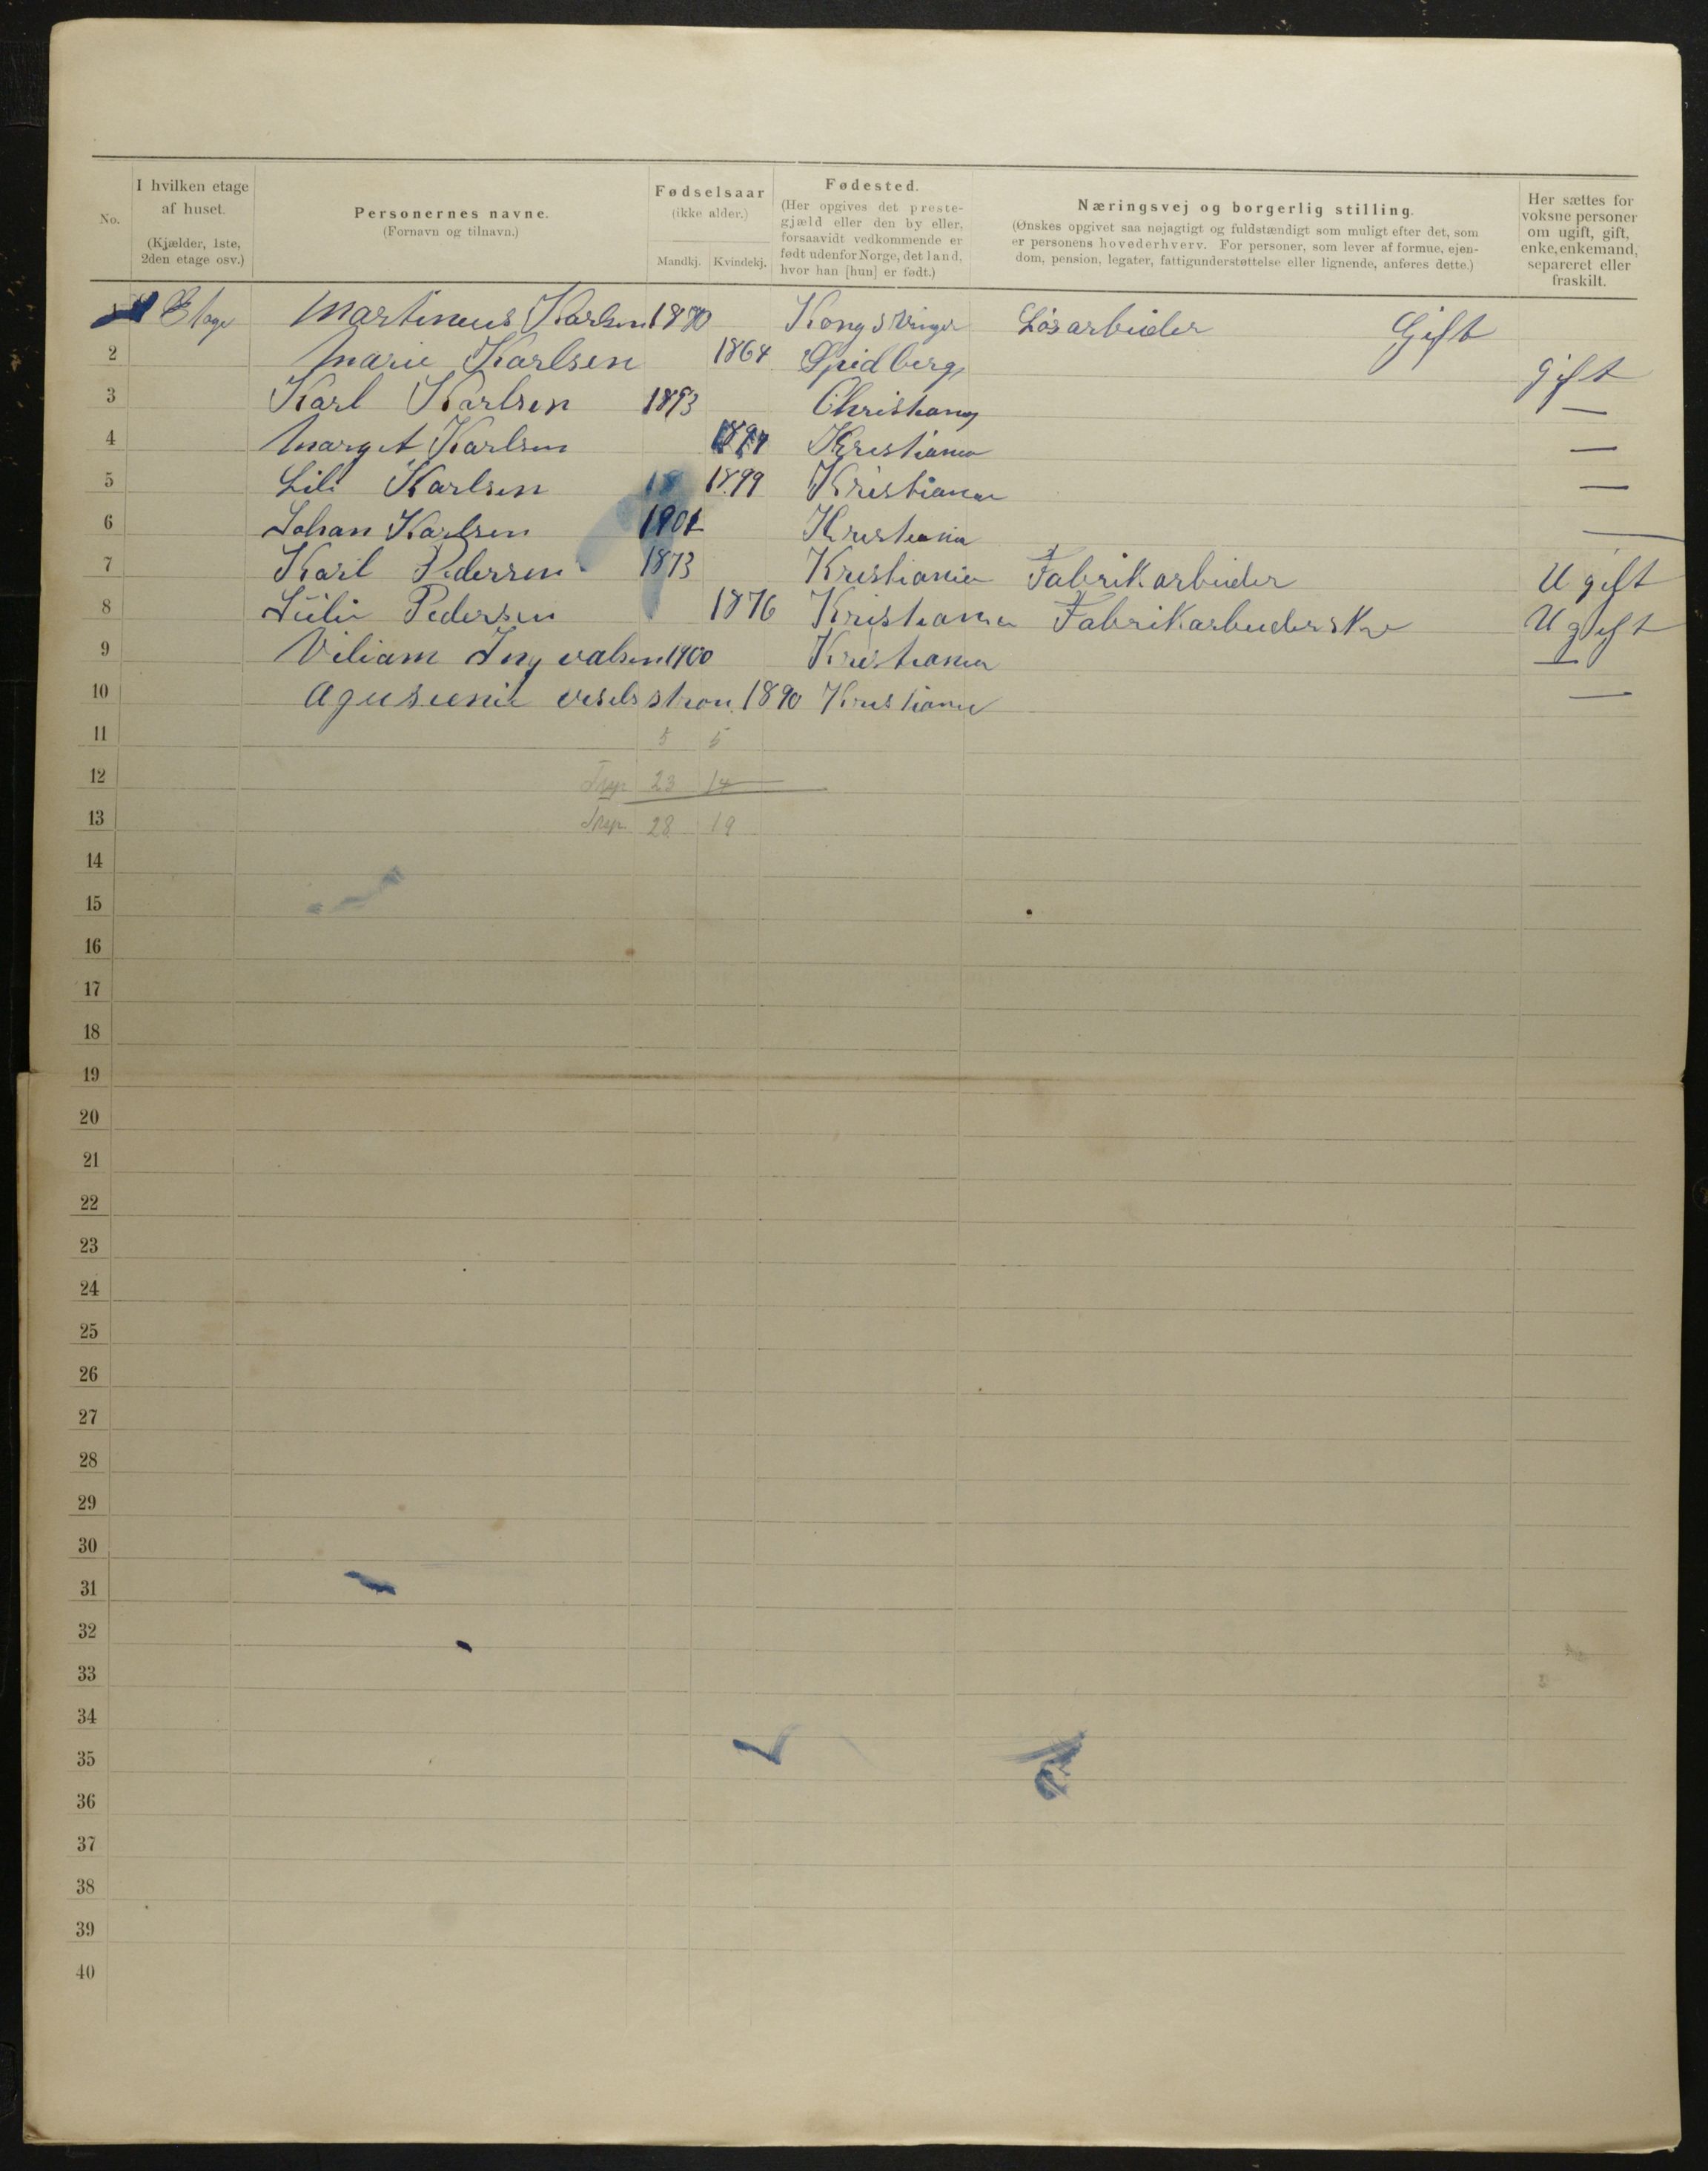 No.
I hvilken etage af huset.
(Kjælder, 1ste, 2den etage osv.)
Personernes navne.
(Fornavn og tilnavn.)
Fødselsaar
(ikke alder.)
Mandkj. Kvindekj.
Fødested.
(Her opgives det prestegjæld eller den by eller, forsaavidt vedkommende er født udenfor Norge, det land, hvor han [hun] er født.)
Næringsvej og borgerlig stilling.
(Ønskes opgivet saa nøjagtigt og fuldstændigt som muligt efter det, som er personens hovederhverv. For personer, som lever af formue, ejendom, pension, legater, fattigunderstøttelse eller lignende, anføres dette.)
Her sættes for voksne personer om ugift, gift, enke, enkemand, separeret eller fraskilt.
Etage Martinus Karlsen Kongsvinger Løsarbeider Gift
2 Marie Karlsen 1864 Spidberg Gift
3 Karl Karlsen 1893 Christiania —
4 Margit Karlsen Kristiania —
5 Lili Karlsen 18 1899 Kristiania —
6 Johan Karlsen 1901 Kristiania —
7 Karl Pedersen 1873 Kristiania Fabrikarbeider Ugift
8 Julie Pedersen 1876 Kristiania Fabrikarbeiderske Ugift
9 Viliam Ingvalsen 1900 Kristiania —
10 1890 Kristiania —
11 5 5
12 Trsp. 23 14
13 Trsp. 28 19
14
15
16
17
18
19
20
21
22
23
24
25
26
27
28
29
30
31
32
33
34
35
36
37
38
39
40